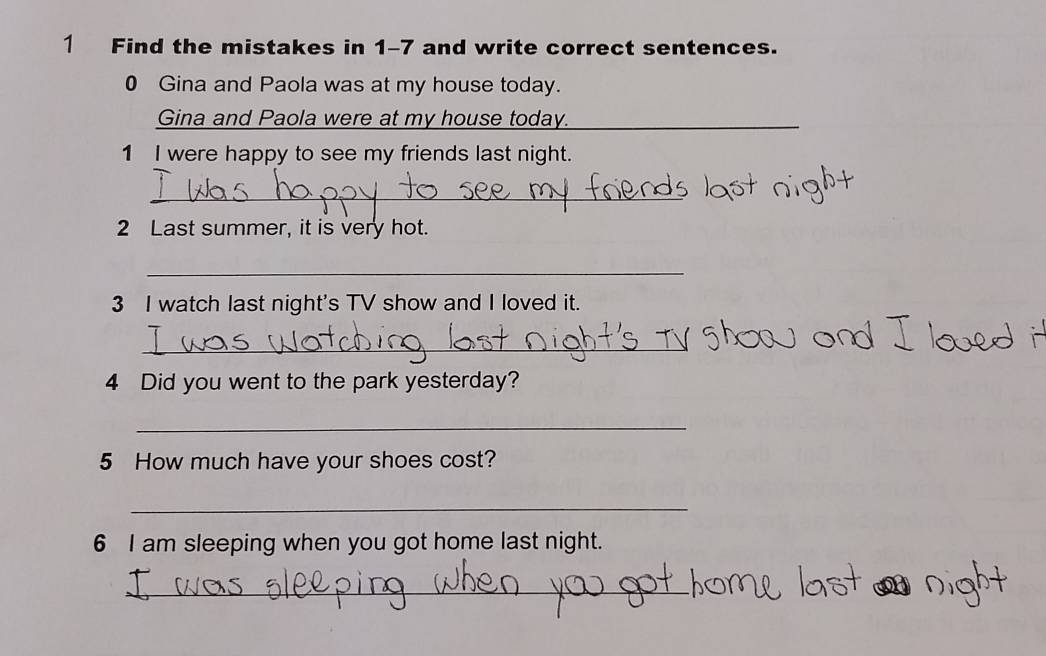 1 Find the mistakes in 1-7 and write correct sentences.
0 Gina and Paola was at my house today.
Gina and Paola were at my house today.
1 I were happy to see my friends last night.
I was happy to see my friends last night
2 Last summer, it is very hot.
3 I watch last night's TV show and I loved it.
I was watching last night's TV show and I loved it
4 Did you went to the park yesterday?
5 How much have your shoes cost?
6 I am sleeping when you got home last night.
I was sleeping when you got home last night